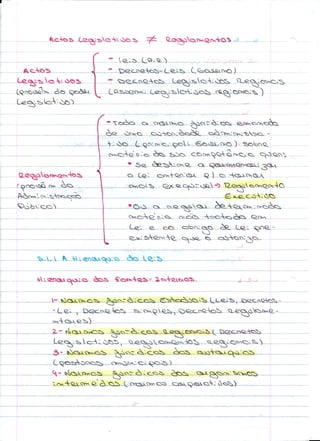 Actos Legislativos ≠ Regulamentos
- Leis (A.R.)
Actos
Legislativos
(provém do poder
Legislativo)
- Decretos-Leis (Governo)
- Decretos Legislativos Regionais
(Assem. Legislativas regionais)
Regulamentos
(provém da
Administração
Pública)
- Toda a norma jurídica emanada
de uma autoridade administra-
tiva sobre
matéria da sua competência que:
* Se destine a
a Lei anterior e a torna
mais exequível → Regulamento
Executivo
* Ou a regular determinada
matéria não tratada em
Lei e co de Lei pré-
existente que o autoriza.
5.1.1 A Hierarquia da Lei
Hierarquia das Fontes Internas
1- Normas Jurídicas Estaduais (Leis, Decretos-
-Lei, Decretos simples, Decretos Regulamen-
tares)
2- Normas Jurídicas Regionais (Decretos
Legislativos, Regulamentos Regionais)
3- Normas Jurídicas das autarquias
(posturas municipais)
4- Normas Jurídicas dos organismos
intermédios (normas corporativas)